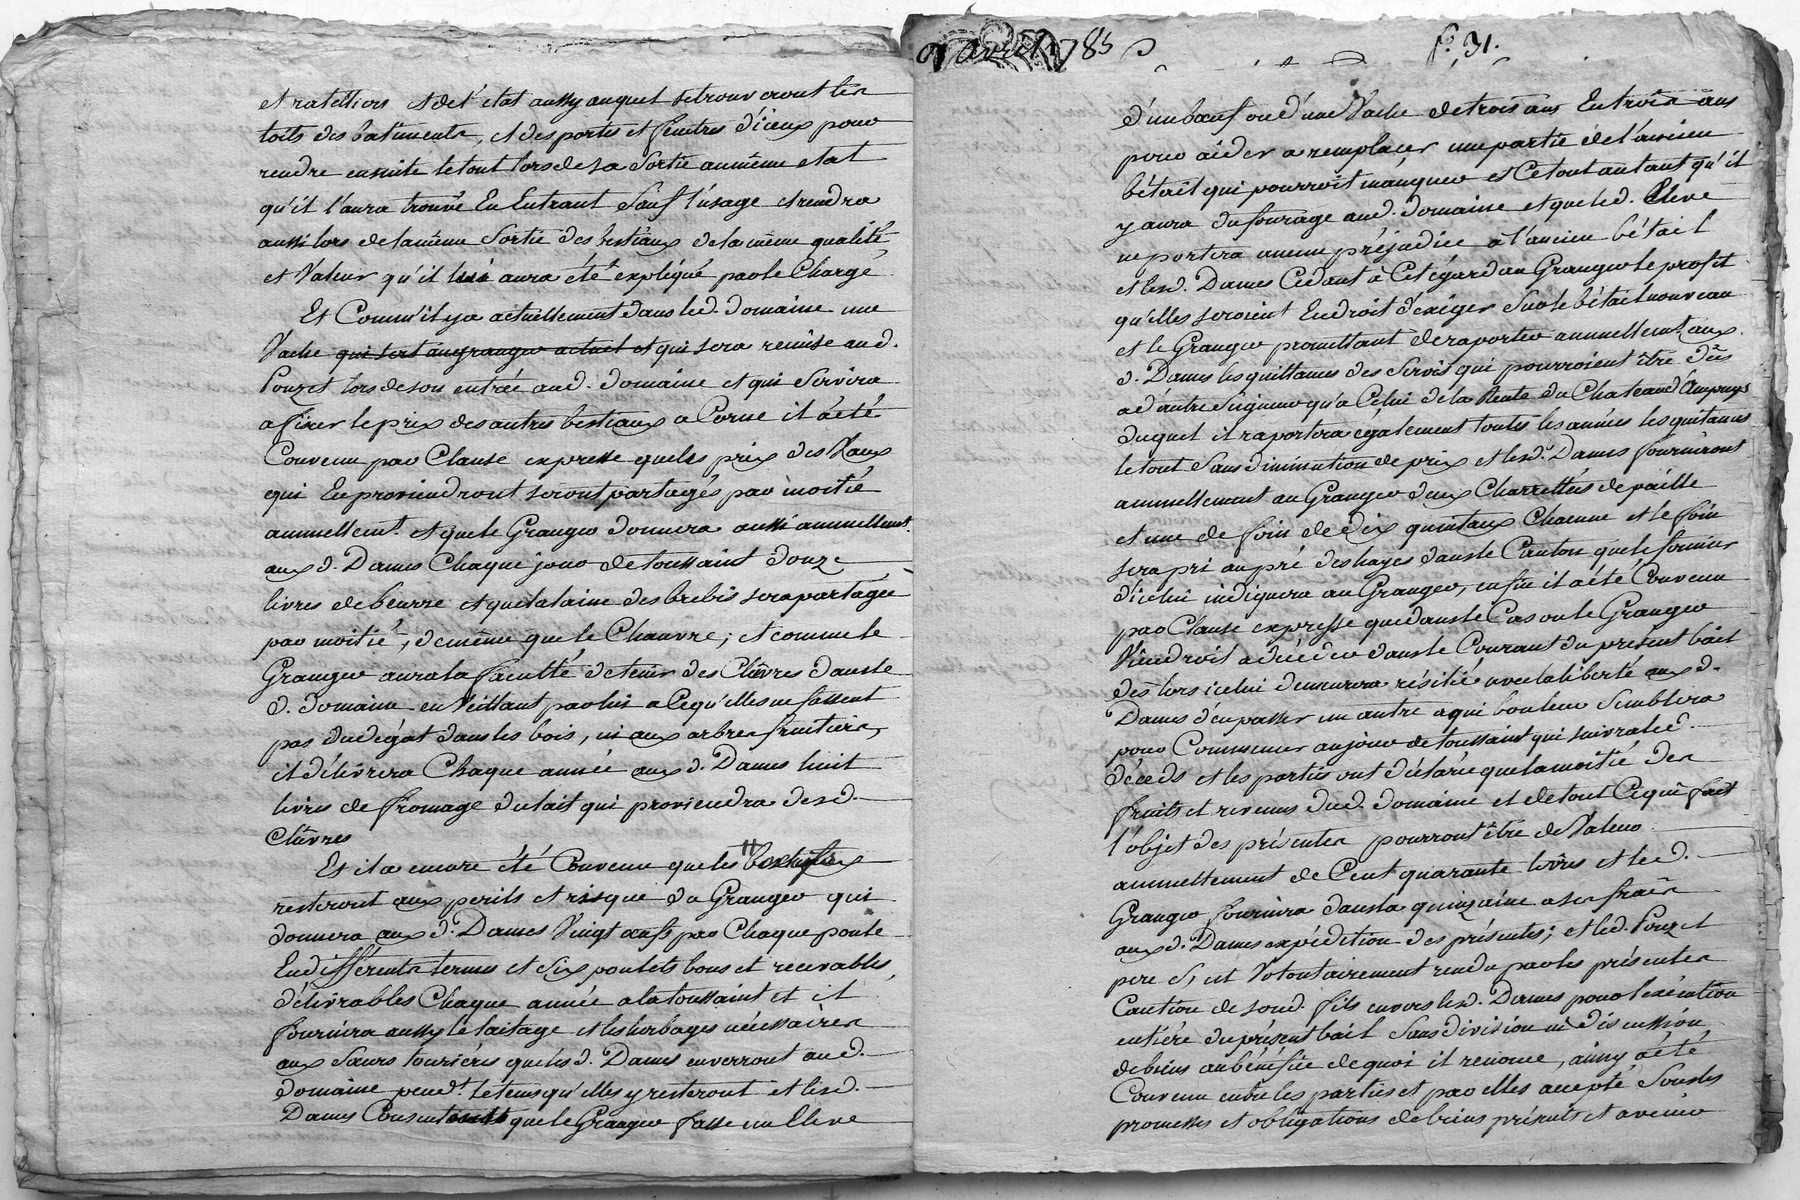 et rateliers et de l'etat aussy auquel se trouveront les
toits des batiments, et des portes et fenetres d'iceux pour
rendre ensuite le tout lors de sa Sortie au même etat
qu'il l'aura trouvé En Entrant Sauf l'usage et rendra
aussi lors de la même Sortie des bestiaux de la même qualité
et Valeur qu'il lui aura été expliqué par le Chargé
Et Comm'il y a actuellement dans led. domaine une
Vache qui sert au granger actuel et qui sera remise aud.
Pouzet lors de son entrée aud. domaine et qui Servira
a fixer le prix des autres bestiaux a Corne il a été
Convenu par Clause expresse que les prix des Vaux
qui En proviendront seront partagés par moitié
annuellemt. et que le Granger donnera aussi annuellemt.
aux d. Dames Chaque jour de toussaint douze
livres de beurre et que la laine des brebis sera partagée
par moitié, de même que le Chanvre; et comme le
Granger aura la faculté de tenir des Chèvres dans le
d. domaine en Veillant par lui a Ce qu'elles ne fassent
pas du dégat dans les bois, ni aux arbres fruitiers,
il délivrera Chaque année aux d. Dames huit
livres de fromage du lait qui proviendra desd.
Chèvres
Et il a encore été Convenu que les bestiaux
resteront aux perils et risque du Granger qui
donnera aux d. Dames Vingt œufs par Chaque poule
En différents termes et Six poulets bons et recevables,
délivrables Chaque année a la toussaint et il
fournira aussy le laitage et les herbages nécessaires
aux Sœurs tourières que lesd. Dames enverront aud.
domaine pendt. le tems qu'elles y resteront et lesd.
Dames Consentent que le Granger fasse un Eleve
7 avril 1785
fo. 31.
d'un bœuf ou d'une Vache de trois ans En trois ans
pour aider a remplacer une partie de l'ancien
bétail qui pourroit manquer et Ce tout autant qu'il
y aura du fourage aud. domaine et que led. Eleve
ne portera aucun préjudice à l'ancien bétail
et lesd. Dames Cedant à Cet égard au Granger le profit
qu'elles seroient En droit d'exiger Sur le bétail nouveau
et le Granger promettant de raporter annuellemt. aux
d. Dames les quittances des Servis qui pourroient être dûs
a d'autre Seigneur qu'a Celui de la Rente du Chateau d'Ampuys
duquel il raportera également toutes les années les quitances
le tout Sans diminution de prix et lesd. Dames fourniront
annuellement au Granger deux Charrettées de paille
et une de foin de dix quintaux Chacune et le foin
sera pri au pré des hayes dans le Canton que le fermier
d'icelui indiquera au Granger, enfin il a été Convenu
par Clause expresse que dans le Cas ou le Granger
Viendroit a décéder dans le Courant du présent bail
dès lors icelui demeurera résilié avec la liberté aux d.
Dames d'en passer un autre a qui bon leur Semblera
pour Commencer au jour de toussaint qui suivra led.
déceds et les parties ont déclaré que la moitié des
fruits et revenus dud. domaine et de tout Ce qui fait
l'objet des présentes pourront être de Valeur
annuellement de Cent quarante livres et led.
Granger fournira dans la quinzaine a ses frais
aux d. Dames expédition des présentes; et led. Pouzet
pere s'est Volontairement rendu par les présentes
Caution de sond. fils envers lesd. Dames pour l'exécution
entière du présent bail Sans division ni discussion
de biens au bénéfice de quoi il renonce, ainsy a été
Convenu entre les parties et par elles accepté Sous les
promesses et obligations de biens présents et avenir